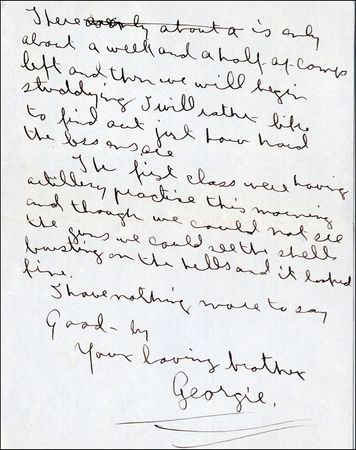 There only about a is only
about a week and a half of camp
left and then we will begin
studdying I will rather like
to find out just how hard
the lessons are
The first class were having
artillery practise this morning
and though we could not see
the guns we could see the shell
bursting on the hells and it looked
fine.
I have nothing more to say
Good-by
Your loving brother
Georgie.